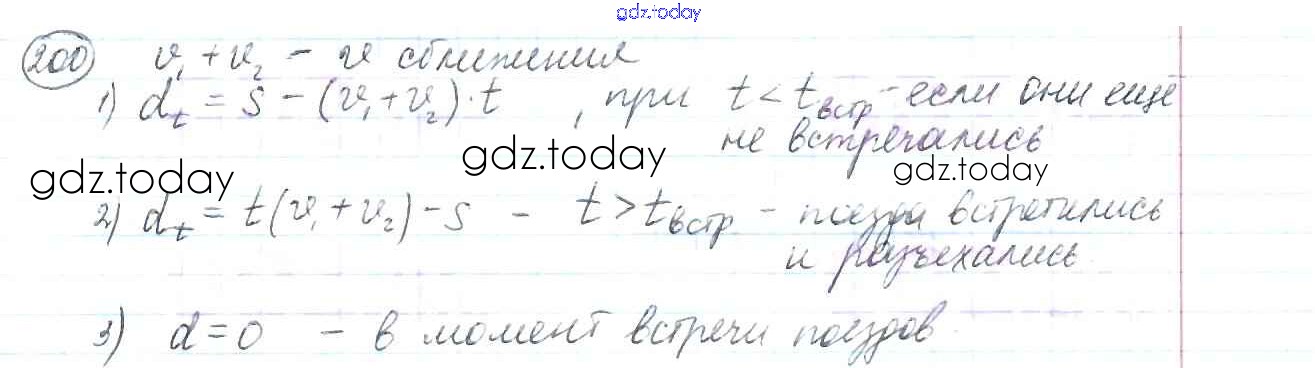 gdz.today
200 v₁ + v₂ - v сближения
1) dₜ = S - (v₁ + v₂) · t , при t < tвстр - если они ещё
не встречались
gdz.today gdz.today gdz.today
2) dₜ = t(v₁ + v₂) - S - t > tвстр - поезда встретились
и разъехались.
3) d = 0 - в момент встречи поездов.